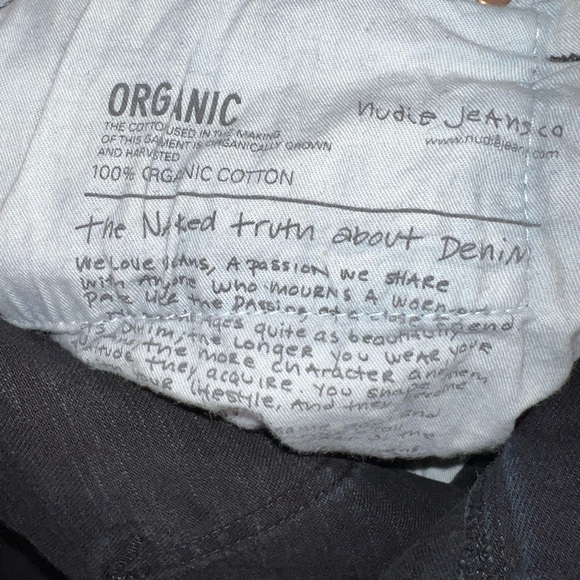 ORGANIC
THE COTTON USED IN THE MAKING
OF THIS GARMENT IS ORGANICALLY GROWN
AND HARVESTED
100% ORGANIC COTTON
nudie jeans co
www.nudiejeans.com
the Naked truth about Denim
We Love Jeans, A passion we share
with Anyone who mourns A worn-out
pair like the passing of a close friend
quite as beautifully
as Denim, the Longer you wear your
the more character and
attitude they acquire you shape
your lifestyle, and they
and